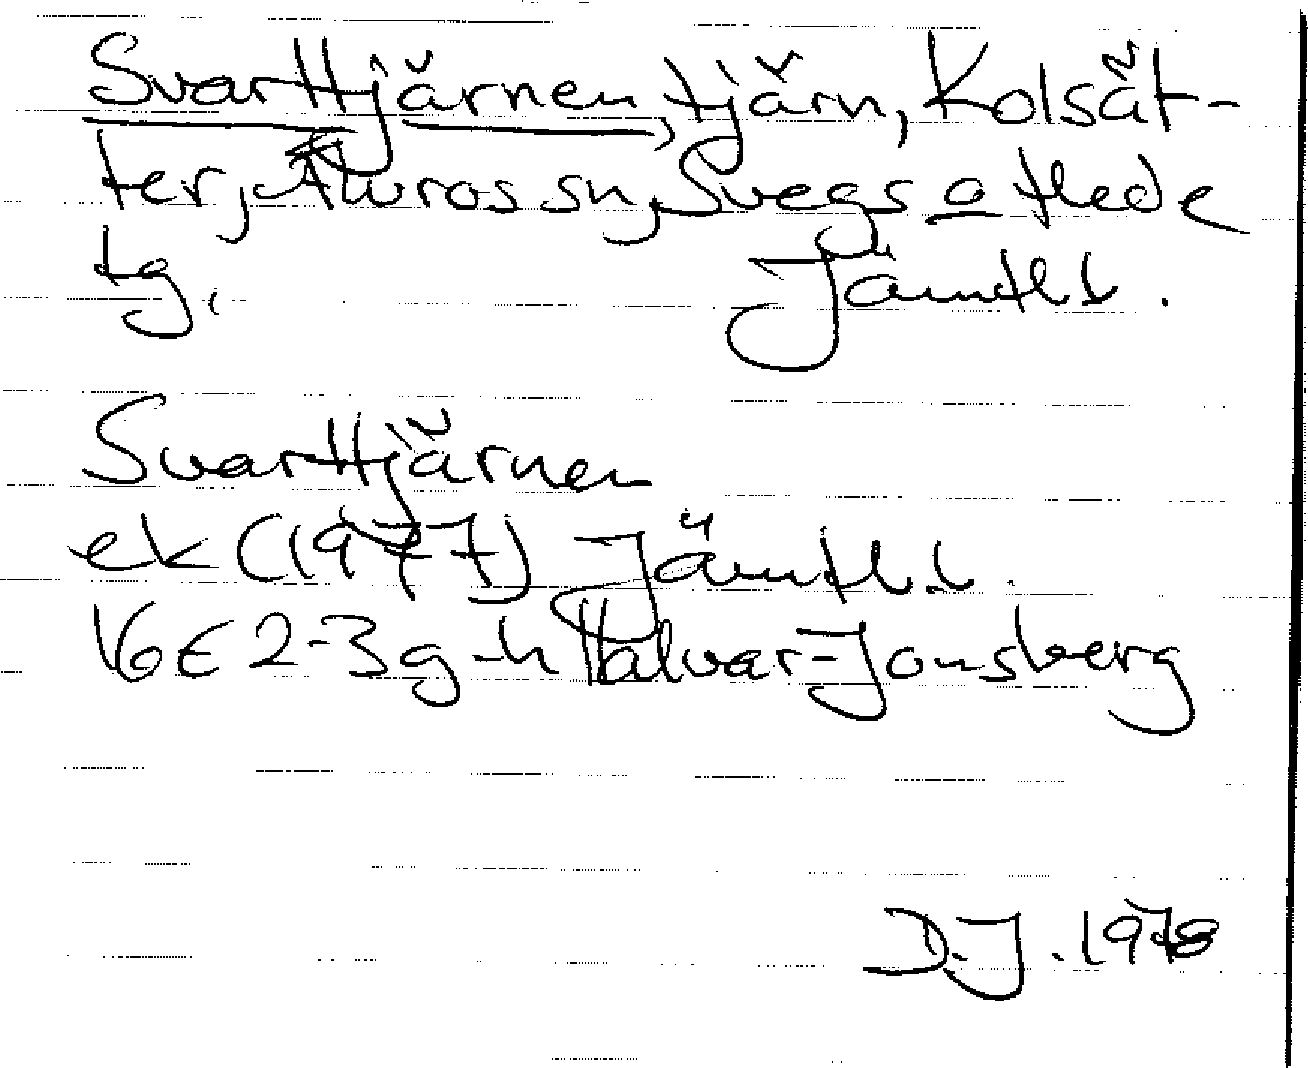 Svarttjärnen, tjärn, Kolsät-
ter, Älvros sn, Svegs o Hede
tg. Jämtl. l.
Svarttjärnen
ek (1977) Jämtl. l.
16E 2-3 g-h Halvar-Jonsberg
D.J. 1978